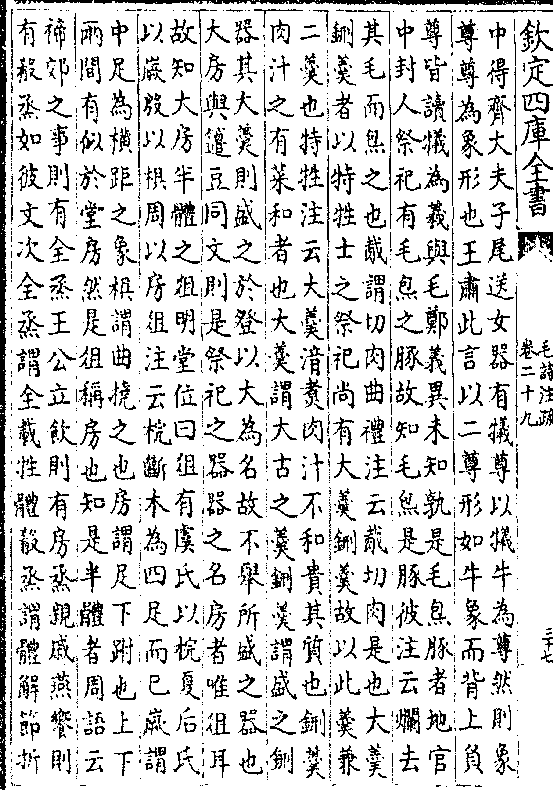 欽定四庫全書
毛詩注疏
卷二十九
三十七
中得齊大夫子尾送女器有犧尊以犧牛為尊然則象
尊尊為象形也王肅此言以二尊形如牛象而背上負
尊皆讀犧為羲與毛鄭義異未知孰是毛炰豚者地官
中封人祭祀有毛炰之豚故知毛炰是豚彼注云爛去
其毛而炰之也胾謂切肉曲禮注云胾切肉是也大羹
鉶羹者以特牲士之祭祀尚有大羹鉶羹故以此羹兼
二羹也特牲注云大羹湆煮肉汁不和貴其質也鉶羹
肉汁之有菜和者也大羹謂大古之羹鉶羹謂盛之鉶
器其大羹則盛之於登以大為名故不舉所盛之器也
大房與籩豆同文則是祭祀之器器之名房者唯俎耳
故知大房半體之俎明堂位曰俎有虞氏以梡夏后氏
以嶡殷以椇周以房俎注云梡斷木為四足而已嶡謂
中足為橫距之象椇謂曲撓之也房謂足下跗也上下
兩間有似於堂房然是俎稱房也知是半體者周語云
禘郊之事則有全烝王公立飫則有房烝親戚燕饗則
有殽烝如彼文次全烝謂全載牲體殽烝謂體解節折